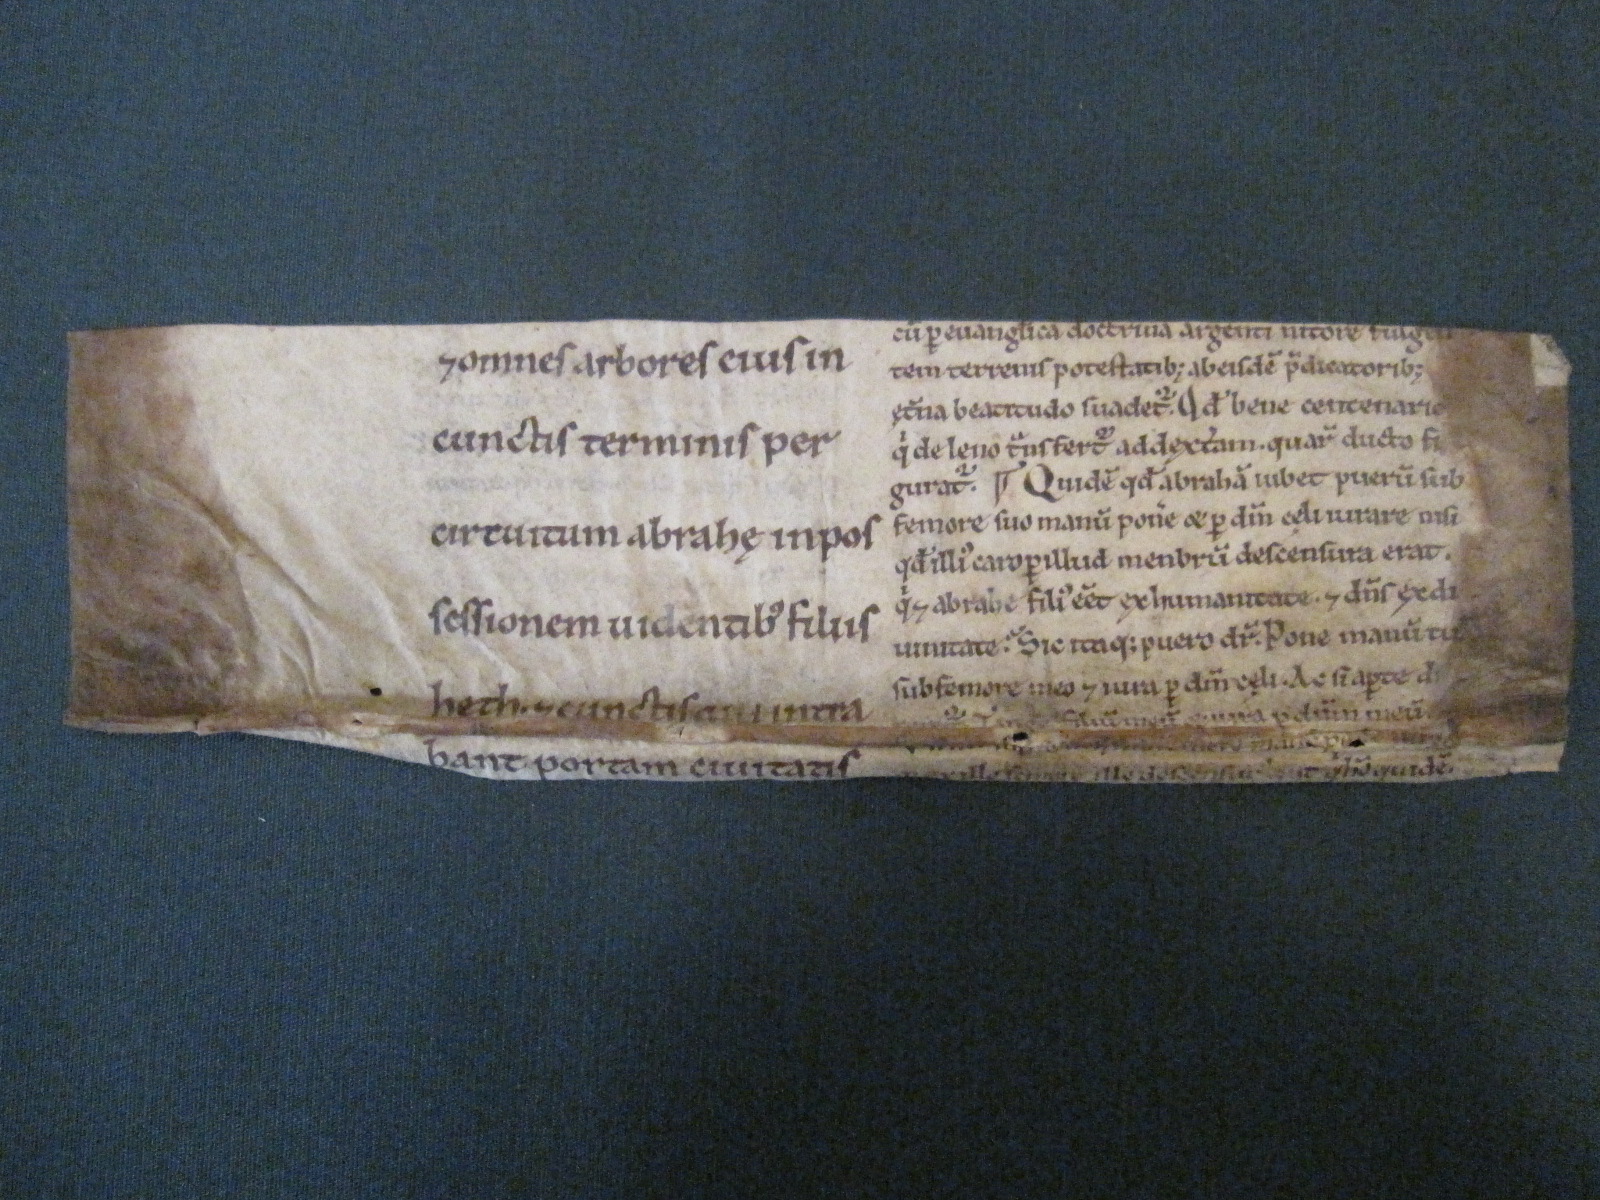 ⁊omnes arbores eius in
cunctis terminis per
circuitum abrahę inpos
sessionem uidentibꝰ filiis
heth.⁊cunctis qui intra
bant portam ciuitatis
cū ꝑ euanglica doctrina argenti nitore fulgen
tem terrenis potestatib; abeisdē p̄dicatorib;
ęt̄na beatitudo suadet᷑. Qd̄ bene centenario
q̇ de leuo t̄nsfert᷑ addext̄am. quar̄ ducto fi
gurat᷑. ¶ Quidē qd̄ abrahā iubet puerū sub
femore suo manū pon̄e ⁊ ꝑ dn̄m cęli iurare nisi
qd̄ illiꝰ caro ꝑ illud menbrū descensura erat.
q̇ ⁊ abrahe filiꝰ eēt ex humanitate. ⁊ dn̄s ex di
uinitate. Sic itaq; puero dr̄. Pone manū tuā
sub femore meo ⁊ iura ꝑ dn̄m cęli. Ac si aꝑte di
meū ⁊ iura ꝑ dn̄m meū.
quidē